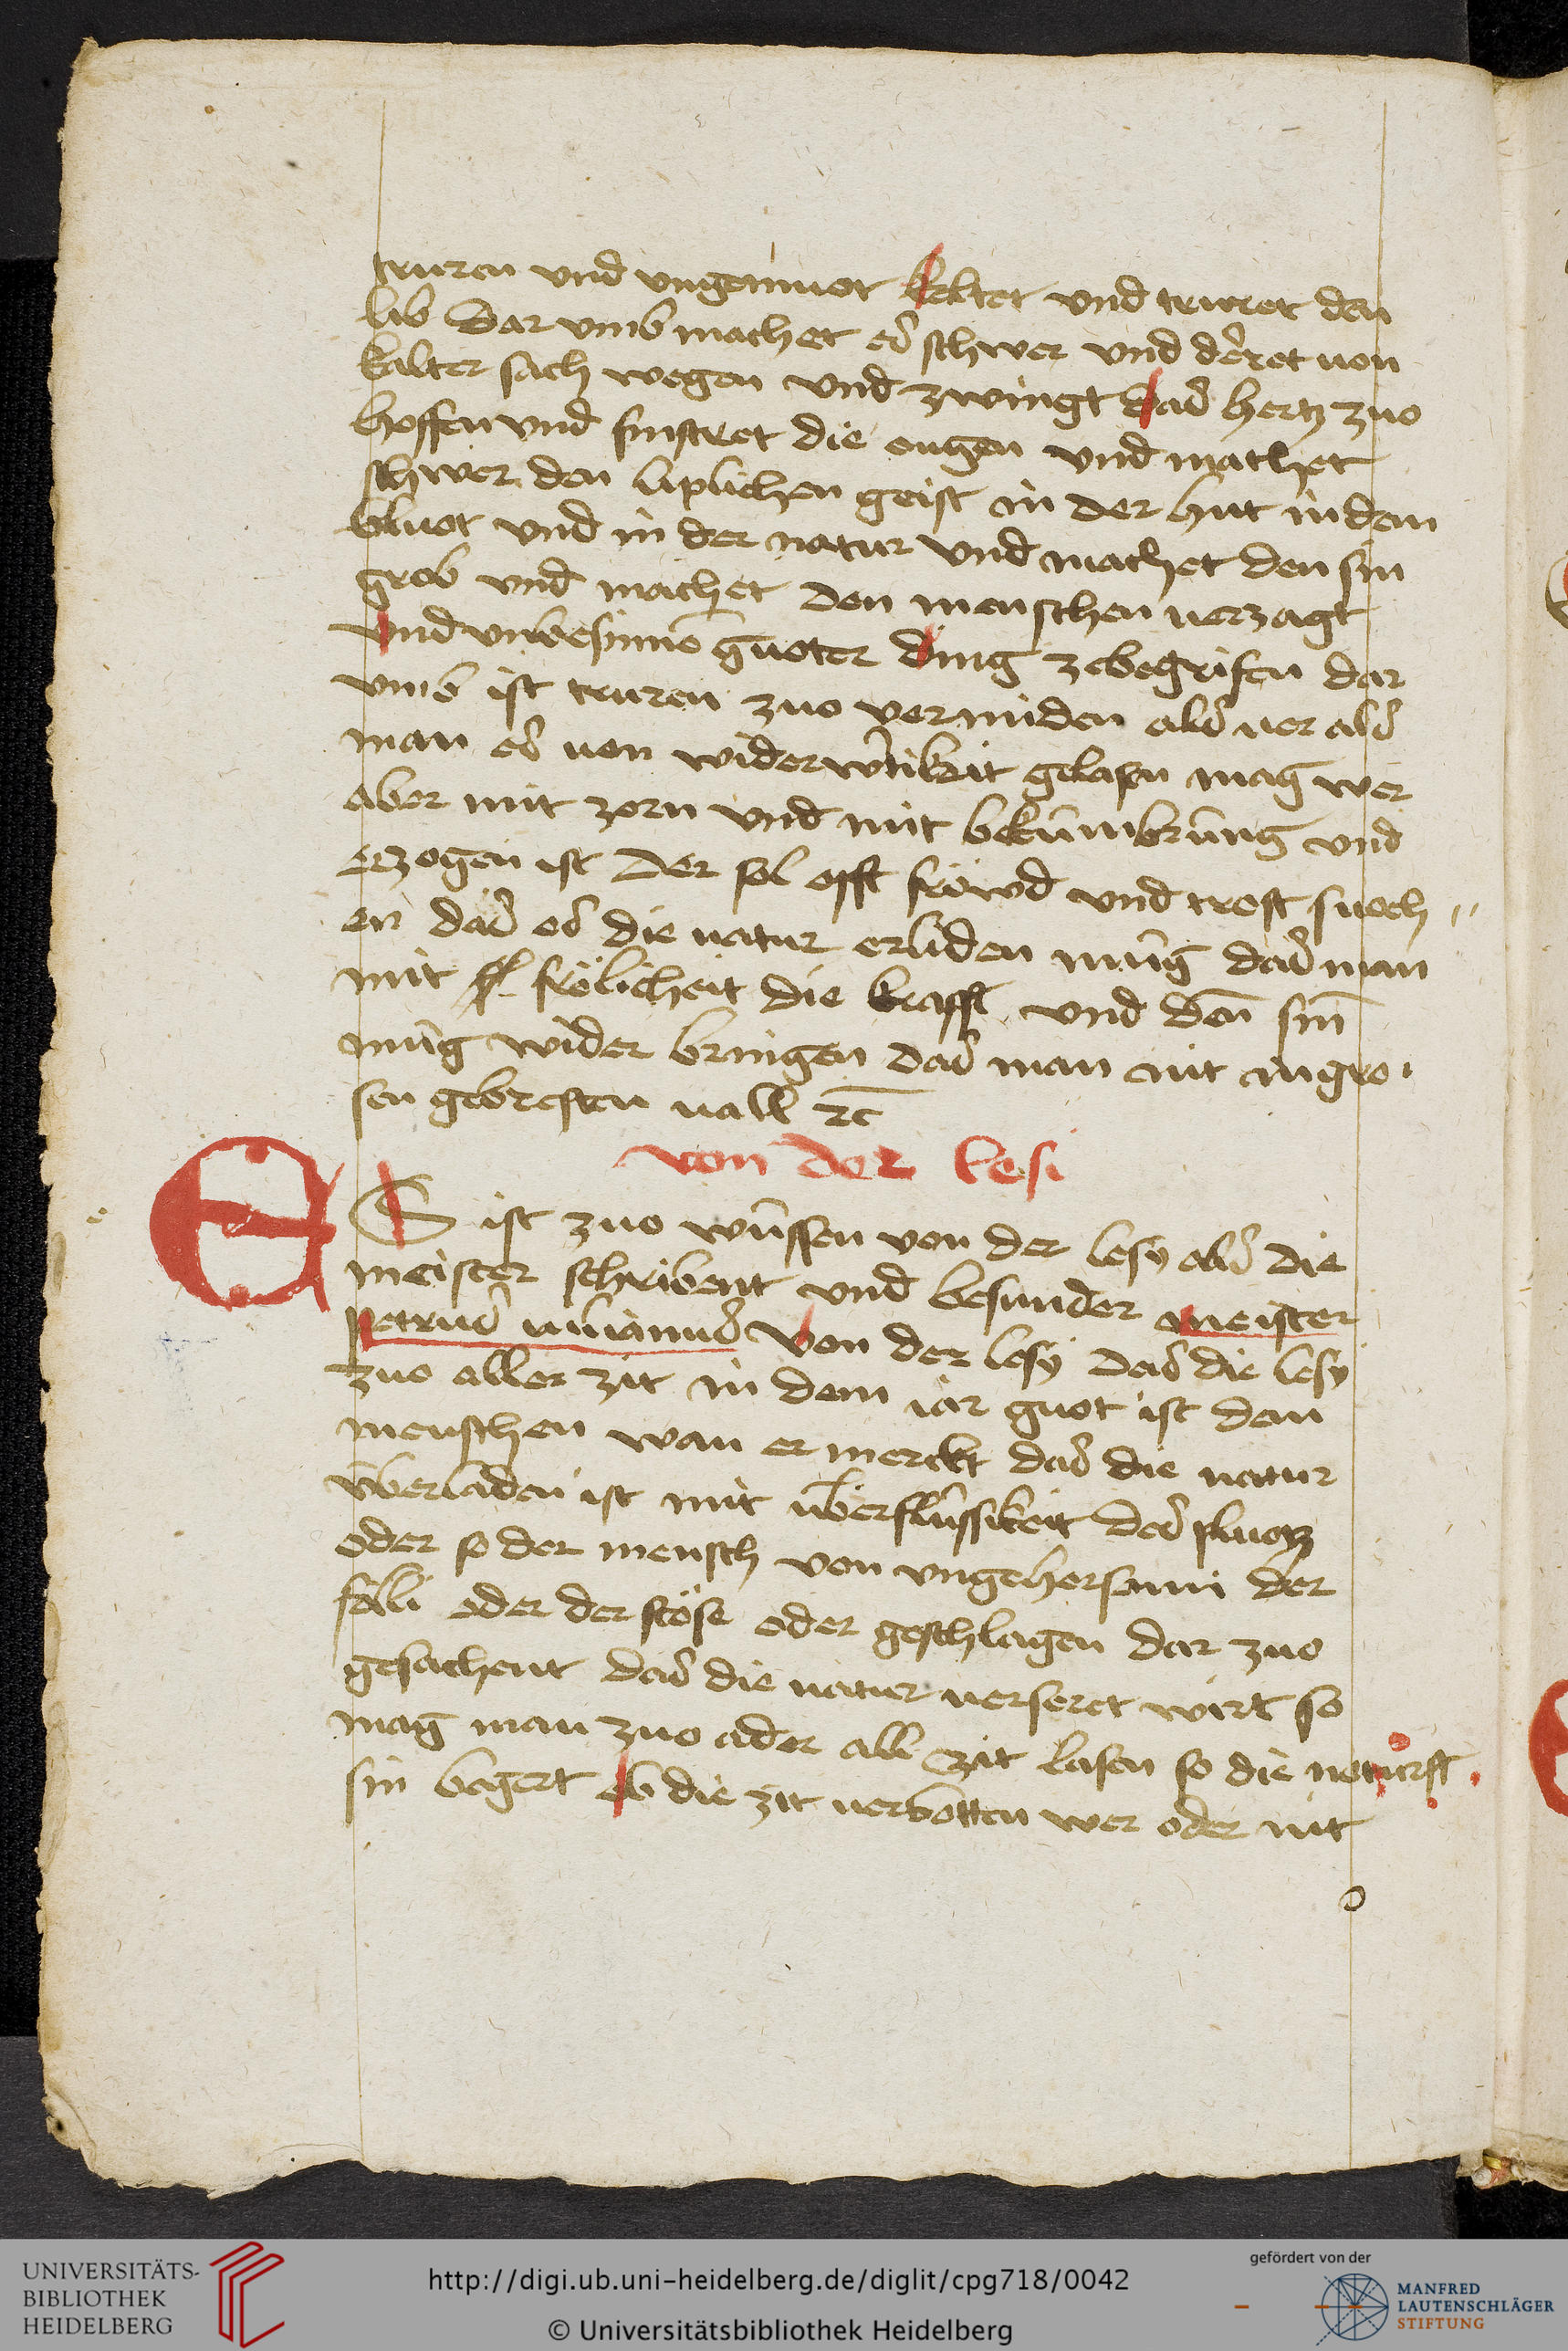 truren vnd vngemuot keltet vnd truret den
lib Dar vmb machet es schwer vnd derret von
kalter sach wegen vnd zwingt das hertz zuo
hoffen vnd finstret die ougen vnd machet
schwer den liplichen geist in der hut in dem
bluot vnd in der natur vnd machet den sin
grob vnd machet den menschen verzagt
vnd vnbesinnē guoter ding zebegrifen dar
vmb ist truren zuo vermiden als ver als
man es von wider mag wer
aber mit zorn vnd mit bekümbrung vnd
erzogen ist Der sol offt fröwd vnd trost suoch
en das es die natur erliden müg das man
mit frölicheit die krafft vnd den sin
müg wider bringen das man nit in gro
sen gebresten vall ꝛc
von der lesi
ES ist zuo wüssen von der lesy als die
meister schribent vnd besunder meister
petrus von der lesy das die lesy
zuo aller zit in dem iar guot ist dem
menschen wan er merckt das die natur
überladen ist mit überflüssikeit des pluotz
oder so der mensch von vngehorsami der
fäli oder der stöse oder geschlagen dar zuo
gesachent das die natur verseret wirt so
mag man zuo ader all zit lasen so die noturft
sin begert ob die zit verbotten wer oder nit
UNIVERSITÄTS-
BIBLIOTHEK
HEIDELBERG
http://digi.ub.uni-heidelberg.de/diglit/cpg718/0042
© Universitätsbibliothek Heidelberg
gefördert von der
MANFRED
LAUTENSCHLÄGER
STIFTUNG